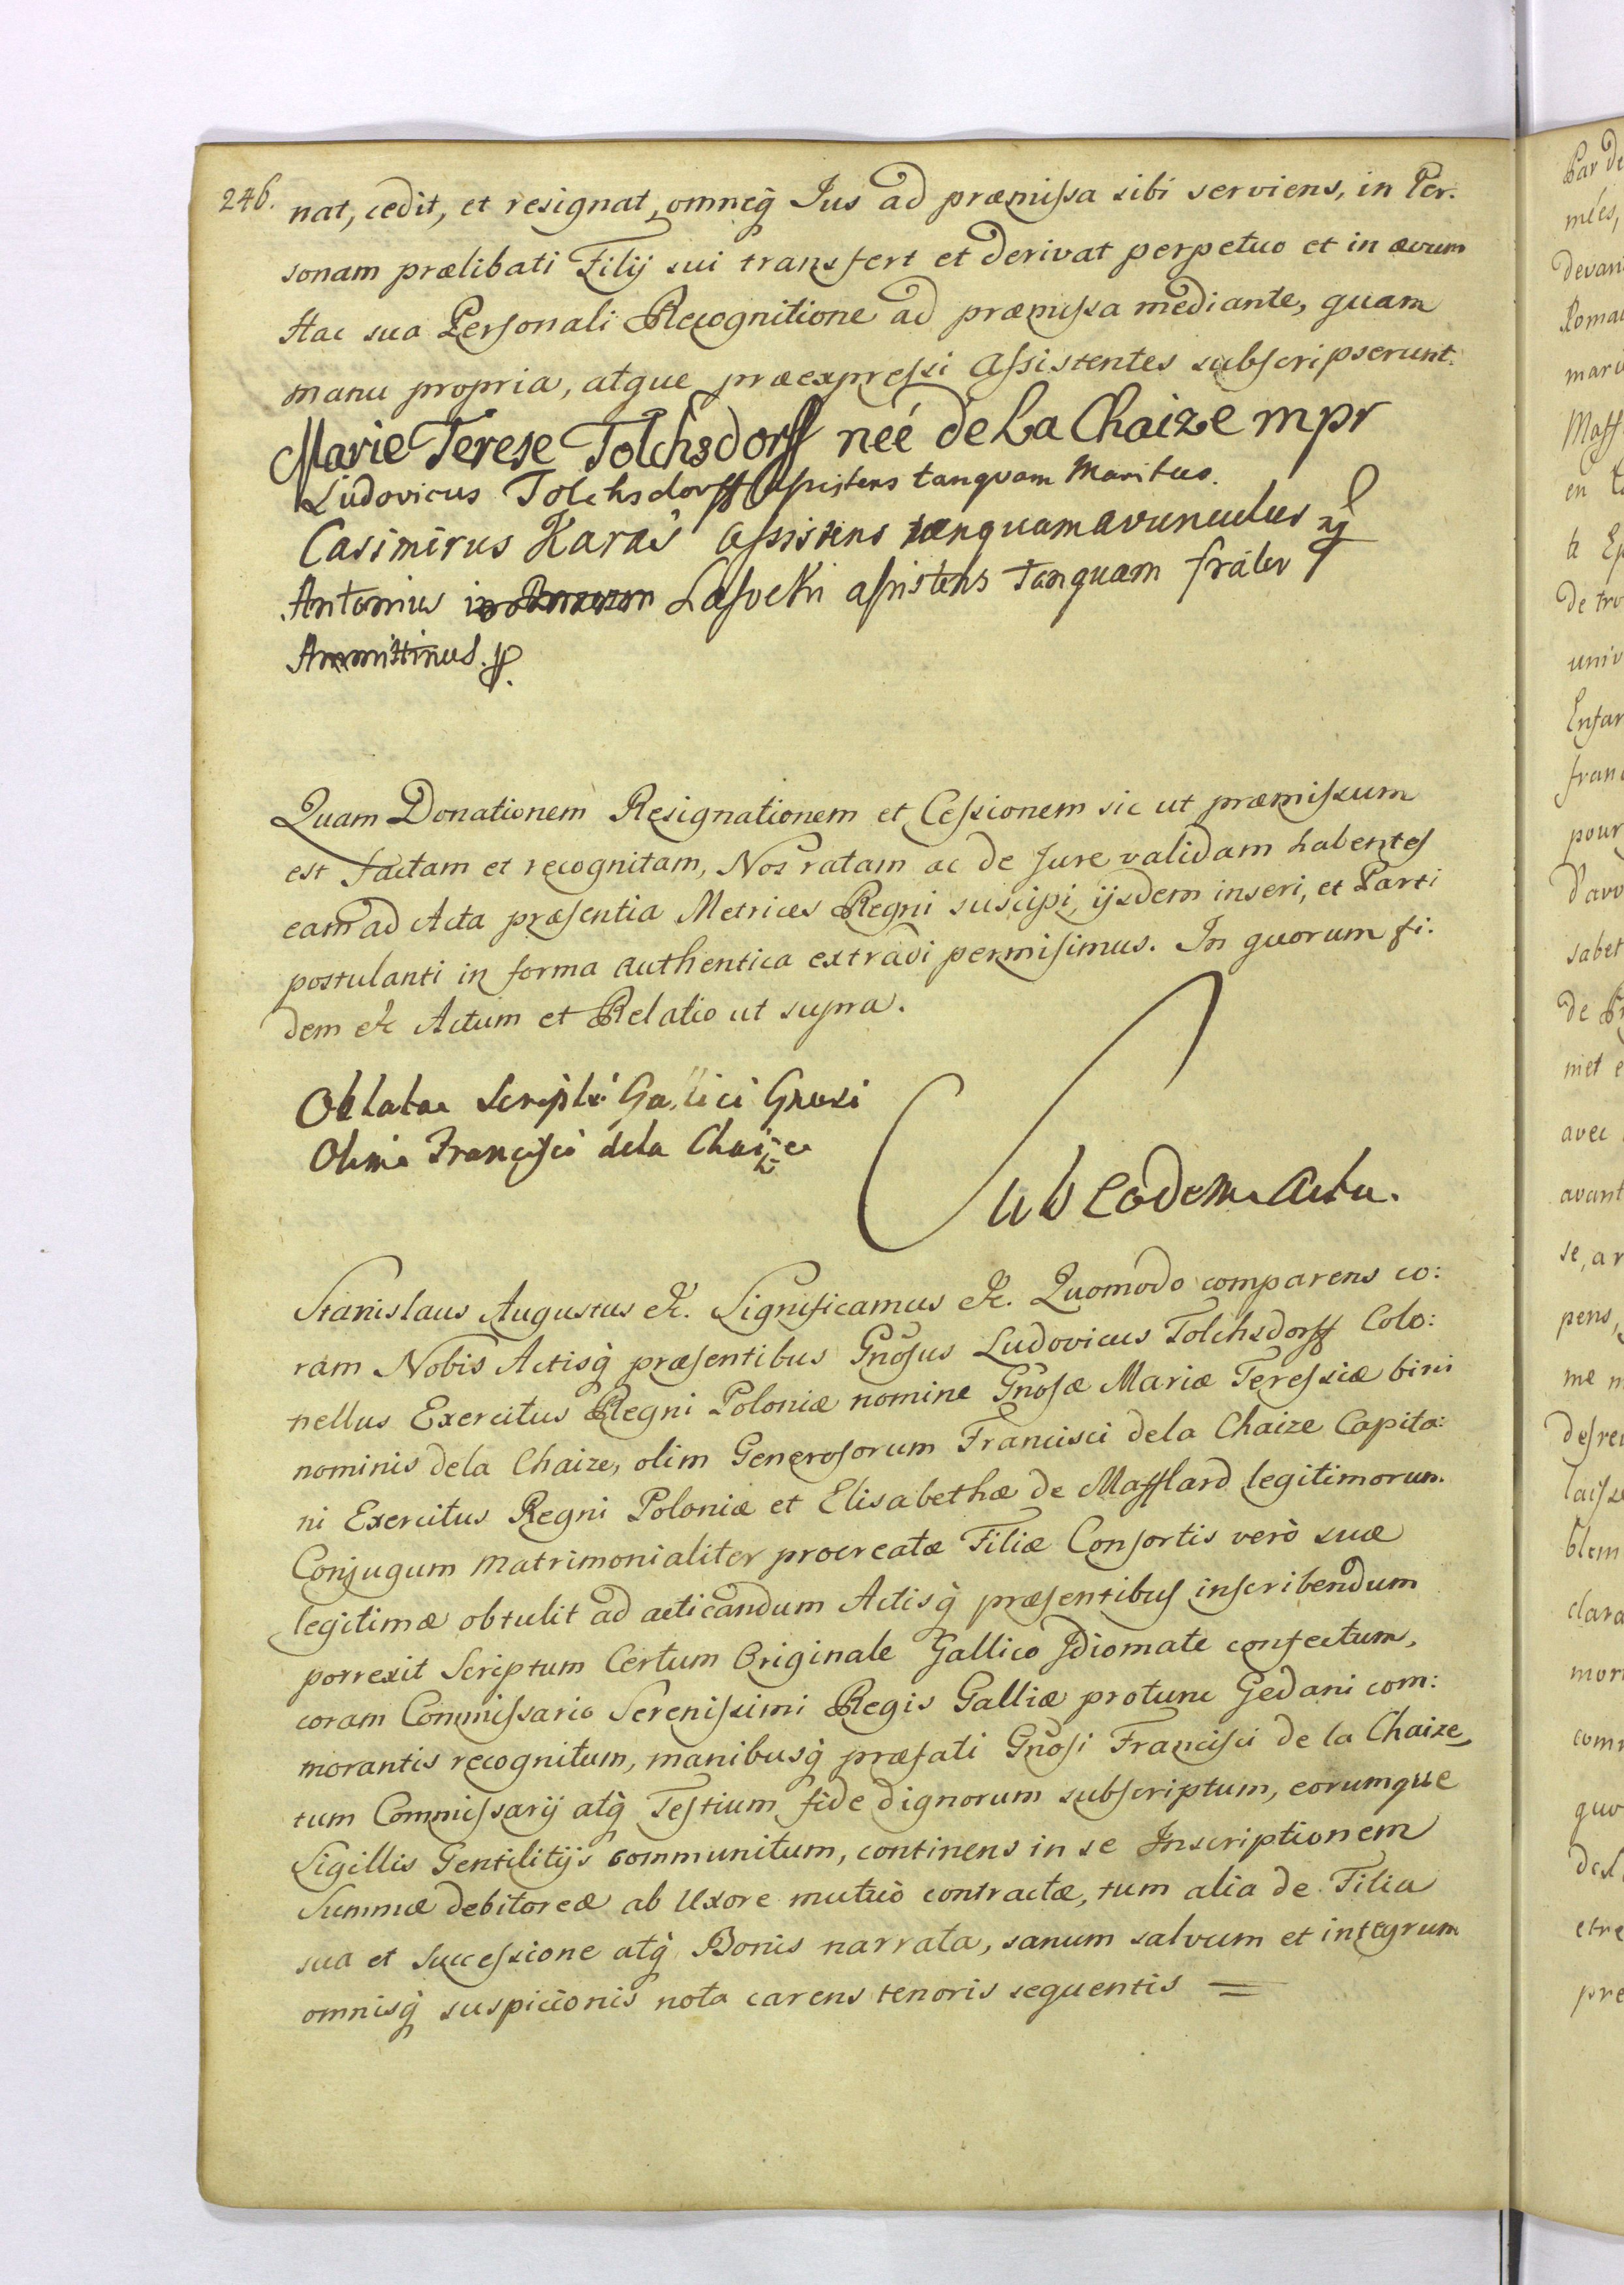 246.
nat, cedit, et resignat, omneq̃ Ius ad præmiſsa sibi serviens, in Per.
sonam prælibati Filij sui transfert et derivat perpetuo et in ævum
Hac sua Perſonali Recognitione ad præmiſsa mediante, quam
manu propria, atque præexpreſsi Aſsistentes subſcripserunt.
Marie Terese Tolchsdorff neé de La Chaize mpr
Ludovicus Tolchsdorff Aſsistens tanquam Maritus.
Casimirus Karaś Aſsistens tanquam avunculus
Antonius Laſocki aſsistens Tanquam frater
Quam Donationem Resignationem et Ceſsionem sic ut præmiſsum
est factam et recognitam, Nos ratam ac de Jure validam habentes
eam ad Acta præſentia Metrices Regni suscipi, ijsdem inseri, et Parti
postulanti in forma authentica extradi permiſimus. In quorum fi:
dem &c Actum et Relatio ut supra.
Oblata Scripti Gallici Gnosi
Olim Franciſci dela Chaize
Sub eodem Actu.
Stanislaus Augustus &c. Significamus &c. Quomodo comparens co:
ram Nobis Actisq̃ præſentibus Gñoſus Ludovicus Tolchsdorff Colo:
nellus Exercitus Regni Poloniæ nomine Gñoſæ Mariæ Tereſsiæ bini
nominis dela Chaize, olim Generoſorum Francisci dela Chaize Capita:
ni Exercitus Regni Poloniæ et Elisabethæ de Mafflard legitimorum
Conjugum matrimonialiter procreatæ Filiæ Conſortis verò suæ
legitimæ obtulit ad acticandum Actisq̃ præſentibus inſcribendum
porrexit Scriptum Certum Originale Gallico Idiomate confectum,
coram Commiſsario Sereniſsimi Regis Galliæ protunc Gedani com:
morantis recognitum, manibusq̃ præfati Gñoſi Franciſci de la Chaize,
tum Commiſsarij atq̃ Teſtium fide dignorum subſcriptum, eorumque
Sigillis Gentilitijs communitum, continens in se Inscriptionem
Summæ debitoreæ ab Uxore mutuò contractæ, tum alia de Filia
sua et Succeſsione atq̃ Bonis narrata, sanum salvum et integrum
omnisq̃ suspicionis nota carens tenoris sequentis =